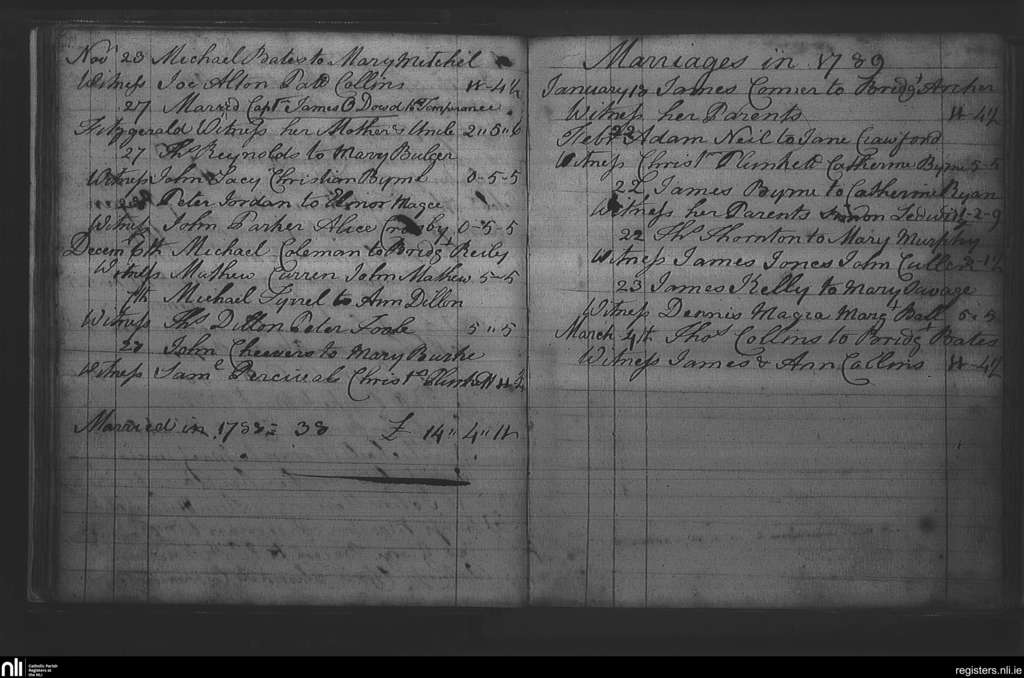 Novr 23 Michael Bates to Mary Mitchel
Witness Joe Alton Patt Collins 11-4½
27 Married Captn James O Dowd to Temprance
Fitzgerald Witness her Mother & Uncle 2"5"6
27 Ths Reynolds to Mary Bulger
Witness John Lacy Christian Byrne 0-5-5
28 Peter Jordan to Elinor Magee
Witness John Parker Alice Crosby 0-5-5
Decemr 6th Michael Coleman to Bridgt Reily
Witness Mathew Curren John Mathew 5-5
7th Michael Tyrrel to Ann Dillon
Witness Ths Dillon Peter Toole 5"5
28 John Cheevers to Mary Burke
Witness Saml Percival Christr Plunkett 11-4½
Married in 1788 = 38 £ 14"4"11
Marriages in 1789
January 13 James Comer to Bridgt Archer
Witness her Parents 11-4½
Febr 22 Adam Neil to Jane Crawford
Witness Christr Plunkett Catherine Byrne 5-5
22 James Byrne to Catherine Ryan
Witness her Parents Simon Ledwith 1-2-9
22 Ths Thornton to Mary Murphy
Witness James Jones John Cullen
23 James Kelly to Mary Savage
Witness Dennis Magra Margt Ball 5-5
March 4th Thos Collins to Bridgt Bates
Witness James & Ann Collins 11-4½
nli
Catholic Parish
Registers at
the NLI
registers.nli.ie